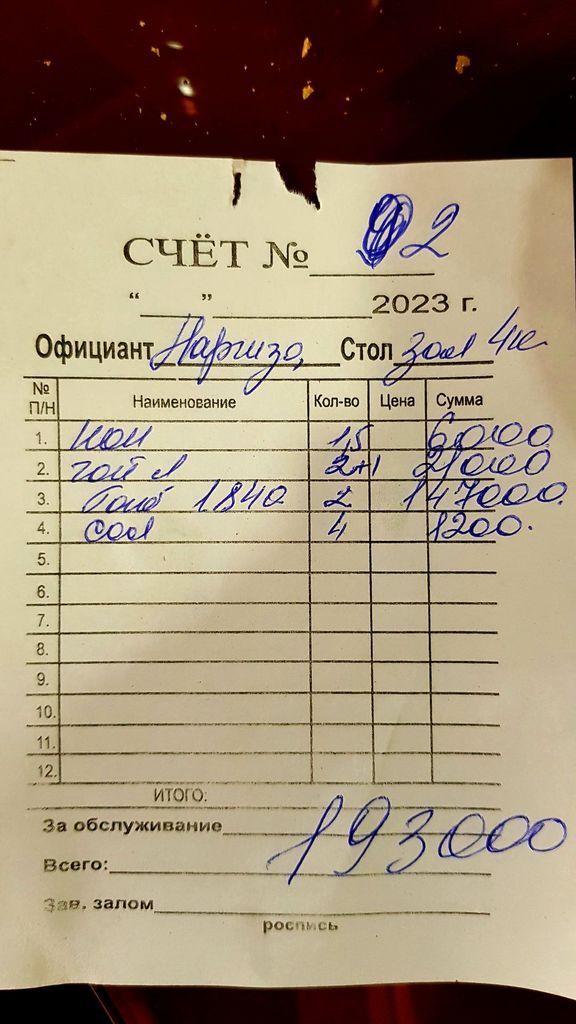 СЧЁТ № 2
“ ” 2023 г.
Официант Наргиза, Стол зал 4к
№ П/Н Наименование Кол-во Цена Сумма
1. нон 1,5 6000
2. чой л 2+1 21000
3. 1840 2 147000.
4. сал 4 1200.
5.
6.
7.
8.
9.
10.
11.
12.
ИТОГО:
За обслуживание
Всего: 193000
Зав. залом
роспись